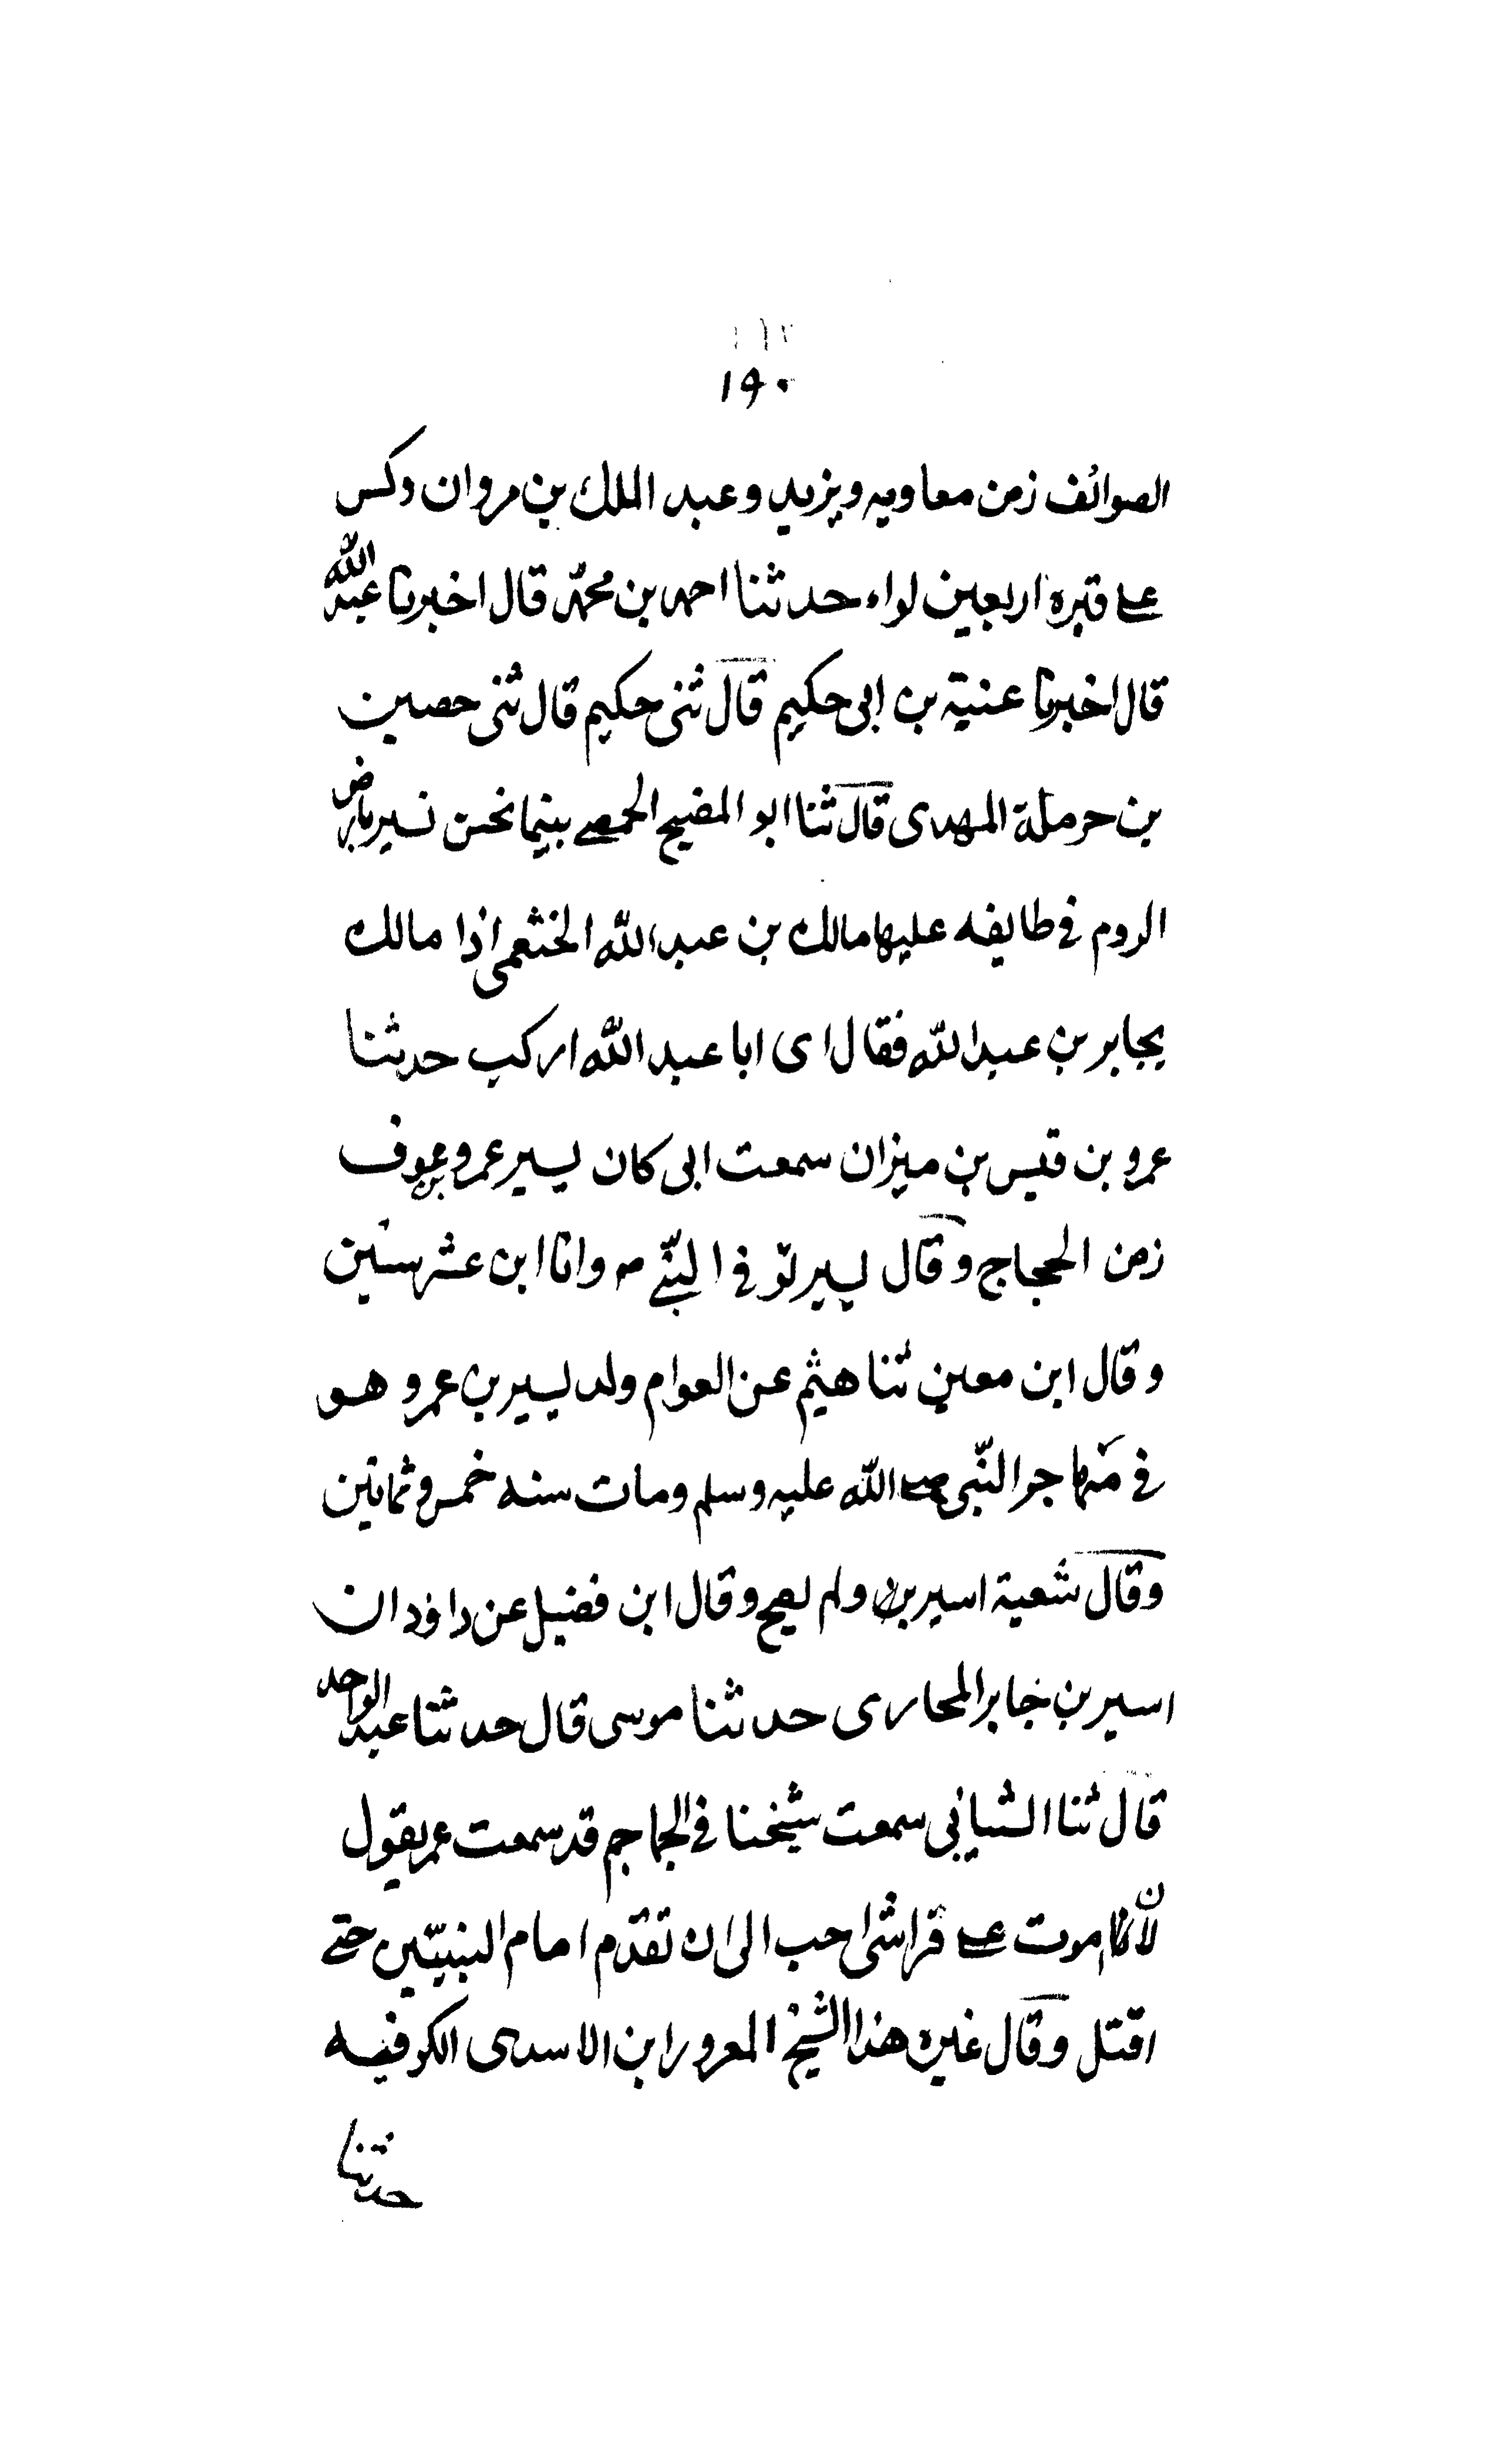 ١٩٠
الصوائف زمن معاويه ويزيد وعبد الملك بن مروان وكسر
على قبره اربعين لواء حدثنا احمد بن محمّد قال اخبرنا عبد الله
قال اخبرنا عنبة بن ابى حكيم قال ثنى حكيم قال ثنى حصين
بن حرملة المهدى قال ثنا ابو المفيح الحمصى بينما نحن نسير بارض
الروم فى طايفه عليها مالك بن عبد الله الخثعمى اذا مالك
بجابر بن عبد الله فقال اى ابا عبد الله اركب حدثنا
عمرو بن قيس بن ميزان سمعت ابى كان يسير عمرو بن عوف
زمن الحجاج وقال يسير توفى النبّى ص وانا ابن عشر سنين
وقال ابن معين ثنا هيثم عن العوام ولد يسير بن عمرو هو
فى مهاجر النّبى صلى الله عليه وسلم ومات سنه خمس وثمانين
وقال شعبة اسير بن ولم يصح وقال ابن فضيل عن داؤد ان
اسير بن جابر المحاربى حدثنا موسى قال حدثنا عبد الواحد
قال ثنا الشيبانى سمعت شيخنا فى الجماجم قد سمعت عمر يقول
لان اموت على فراشى احب الى ان تقدّم امام النبيّين حتى
اقتل وقال غيره هذا الشيخ المعرور ابن الاسدى الكوفيه
حدثنا